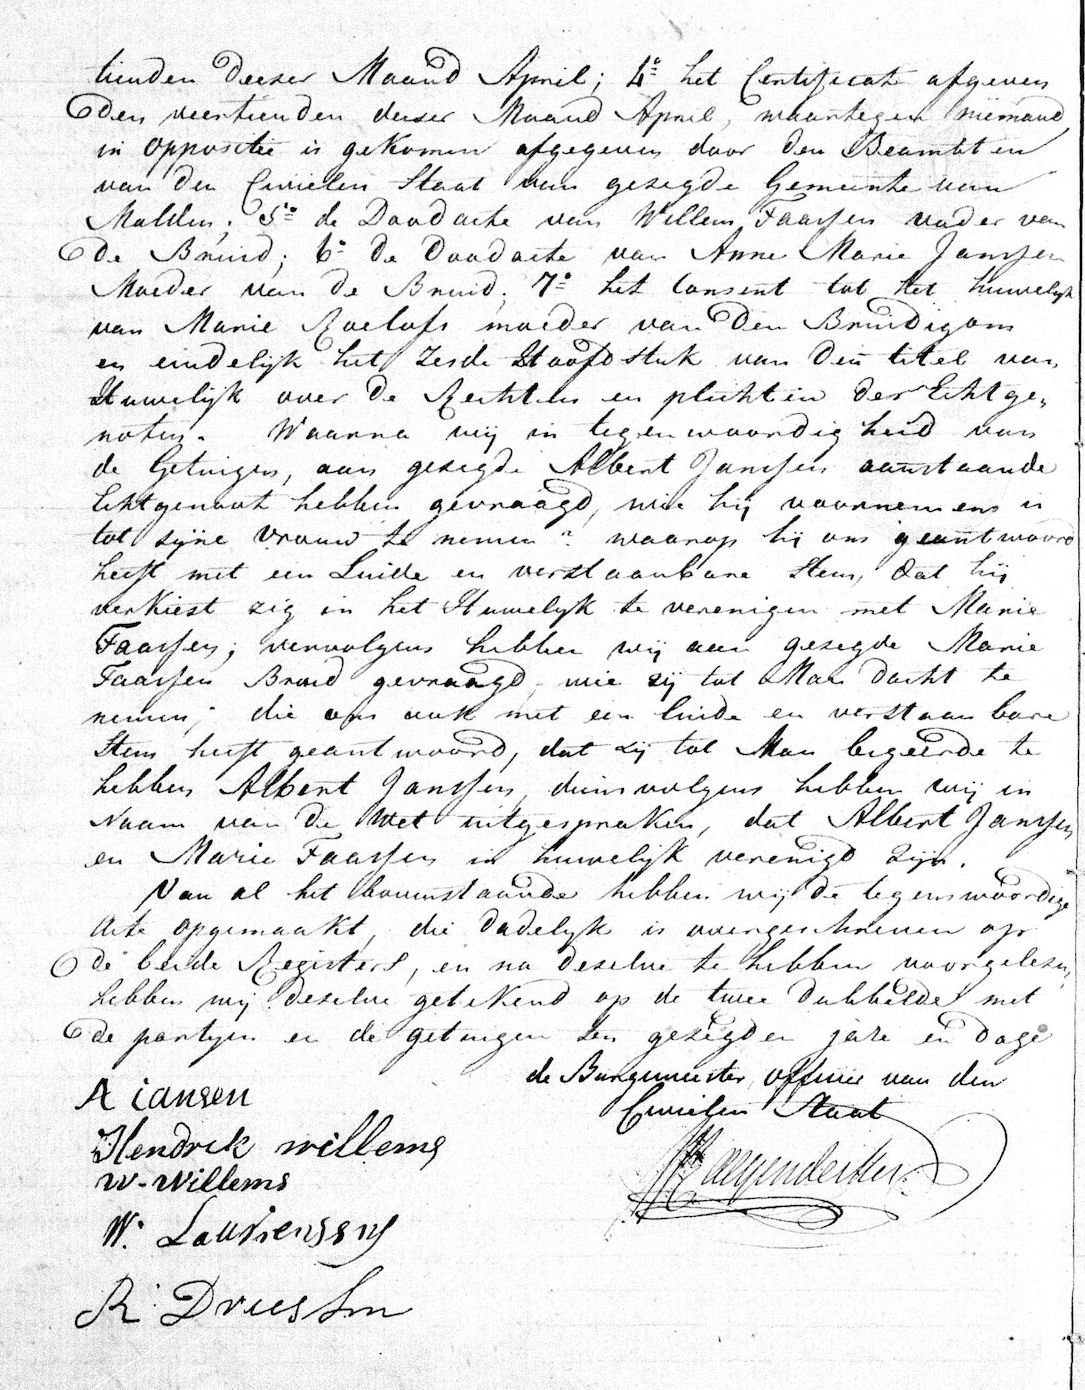 tienden deeser Maand April; 4º het Certificat afgeven
den veertienden deeser Maand April, waartegen niemand
in oppositie is gekomen afgegeven door den Beambten
van den Civielen Staat van gezegde Gemeente van
Malden; 5º de Doodacte van Willem Faassen vader van
de Bruid; 6º de Doodacte van Anne Marie Janssen
Moeder van de Bruid; 7º het Consent tot het huwelijk
van Marie Roelofs moeder van Den Bruidigom
en eindelijk het Zesde Hoofdstuk van den titel van
Huwelijk over de Rechten en plichten der Echtge„
noten. Waarna wij in tegenwoordigheid van
de Getuigen, aan gezegde Albert Janssen aanstaande
Echtgenoot hebben gevraagd, wie hij voornemens is
tot zijne Vrouw te nemen? waarop hij ons geantwoord
heeft met een Luide en verstaanbare Stem, dat hij
verkiest zig in het Huwelijk te verenigen met Marie
Faassen; vervolgens hebben wij aan gezegde Marie
Faassen Bruid gevraagd, wie zij tot Man dacht te
nemen; die ons ook met een luide en verstaanbare
Stem heeft geantwoord, dat zij tot Man begeerde te
hebben Albert Janssen, diensvolgens hebben wij in
Naam van de Wet uitgesproken, dat Albert Janssen
en Marie Faassen in huwelijk verenigd zijn.
Van al het bovenstaande hebben wij de tegenswoordige
Acte opgemaakt, die dadelijk is overgeschreven op
de beide Registers, en na deselve te hebben voorgelesen,
hebben wij deselve getekend op de twee dubbelde met
de partijen en de getuigen ten gezegden jare en dage
de Burgemeester, officier van den
Civielen Staat
A iansen
Hendrik willems
W. Willems
W. Laurenssen
R. Driessen